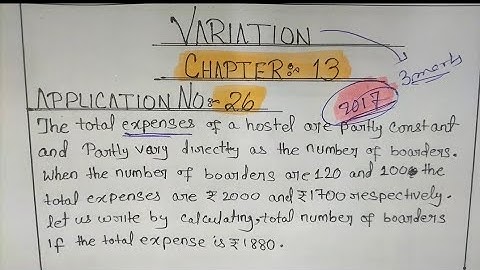 VARIATION
CHAPTER:- 13
3 marks
APPLICATION No:- 26
2017
The total expenses of a hostel are partly constant
and Partly vary directly as the number of boarders.
When the number of boarders are 120 and 100 the
total expenses are ₹2000 and ₹1700 respectively.
let us write by calculating, total number of boarders
If the total expense is ₹1880.